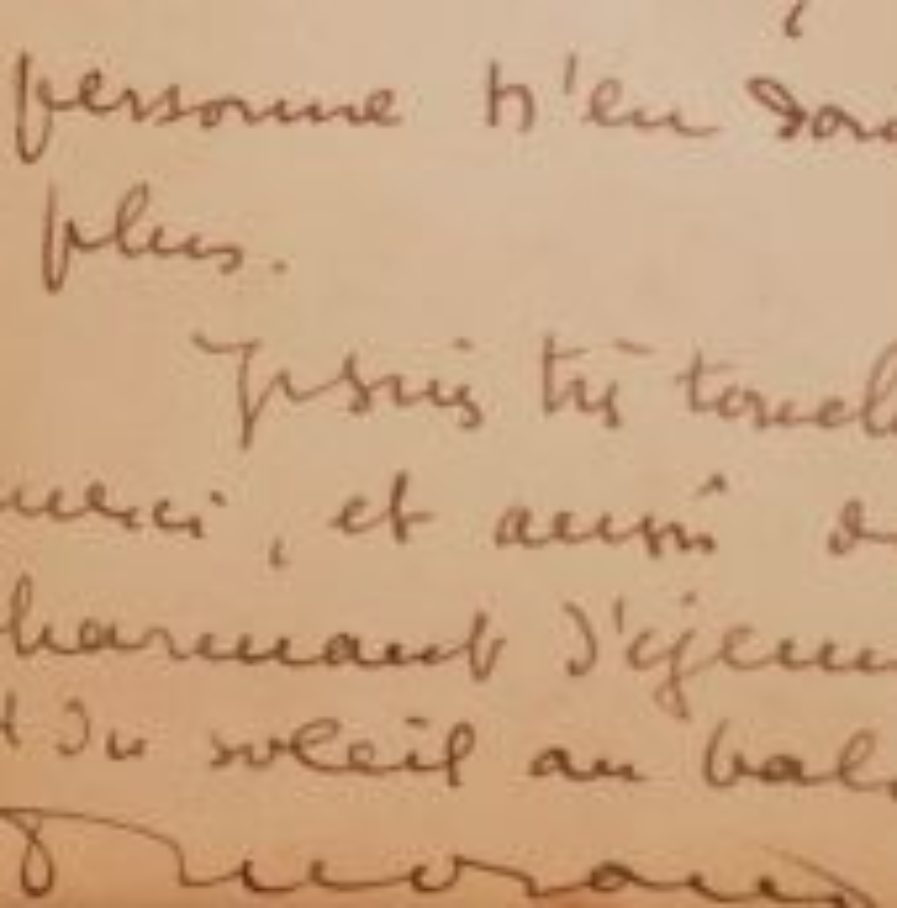 personne n'en dou
plus.
Je suis très touch
merci, et aussi d
harmant déjeun
t du soleil au balc
Morand